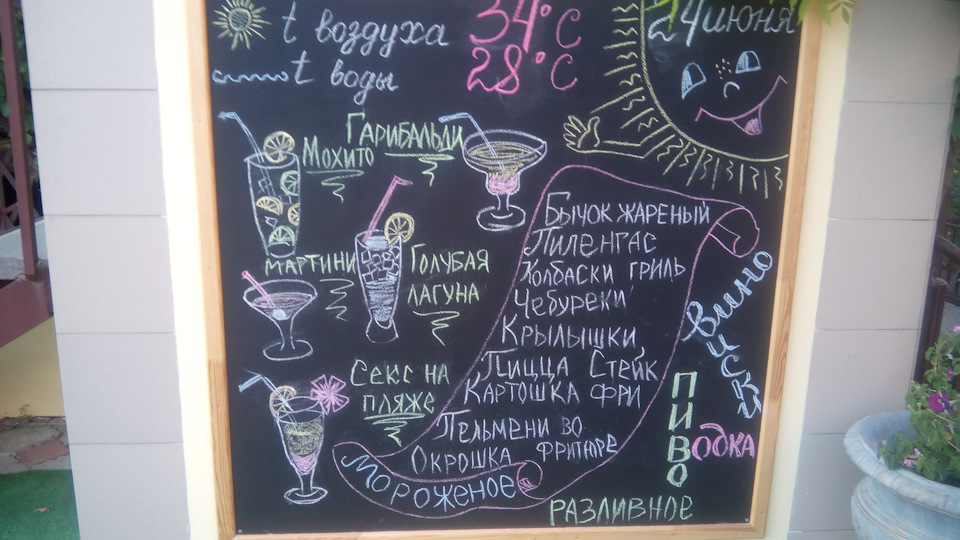 t воздуха 34°C
t воды 28°C
24 июня
Гарибальди
Мохито
Мартини
Голубая
лагуна
Секс на
пляже
Бычок жареный
Пиленгас
Колбаски гриль
Чебуреки
Крылышки
Пицца Стейк
Картошка фри
Пельмени во
фритюре
Окрошка
Мороженое
Вино
Виски
Пиво
Водка
разливное